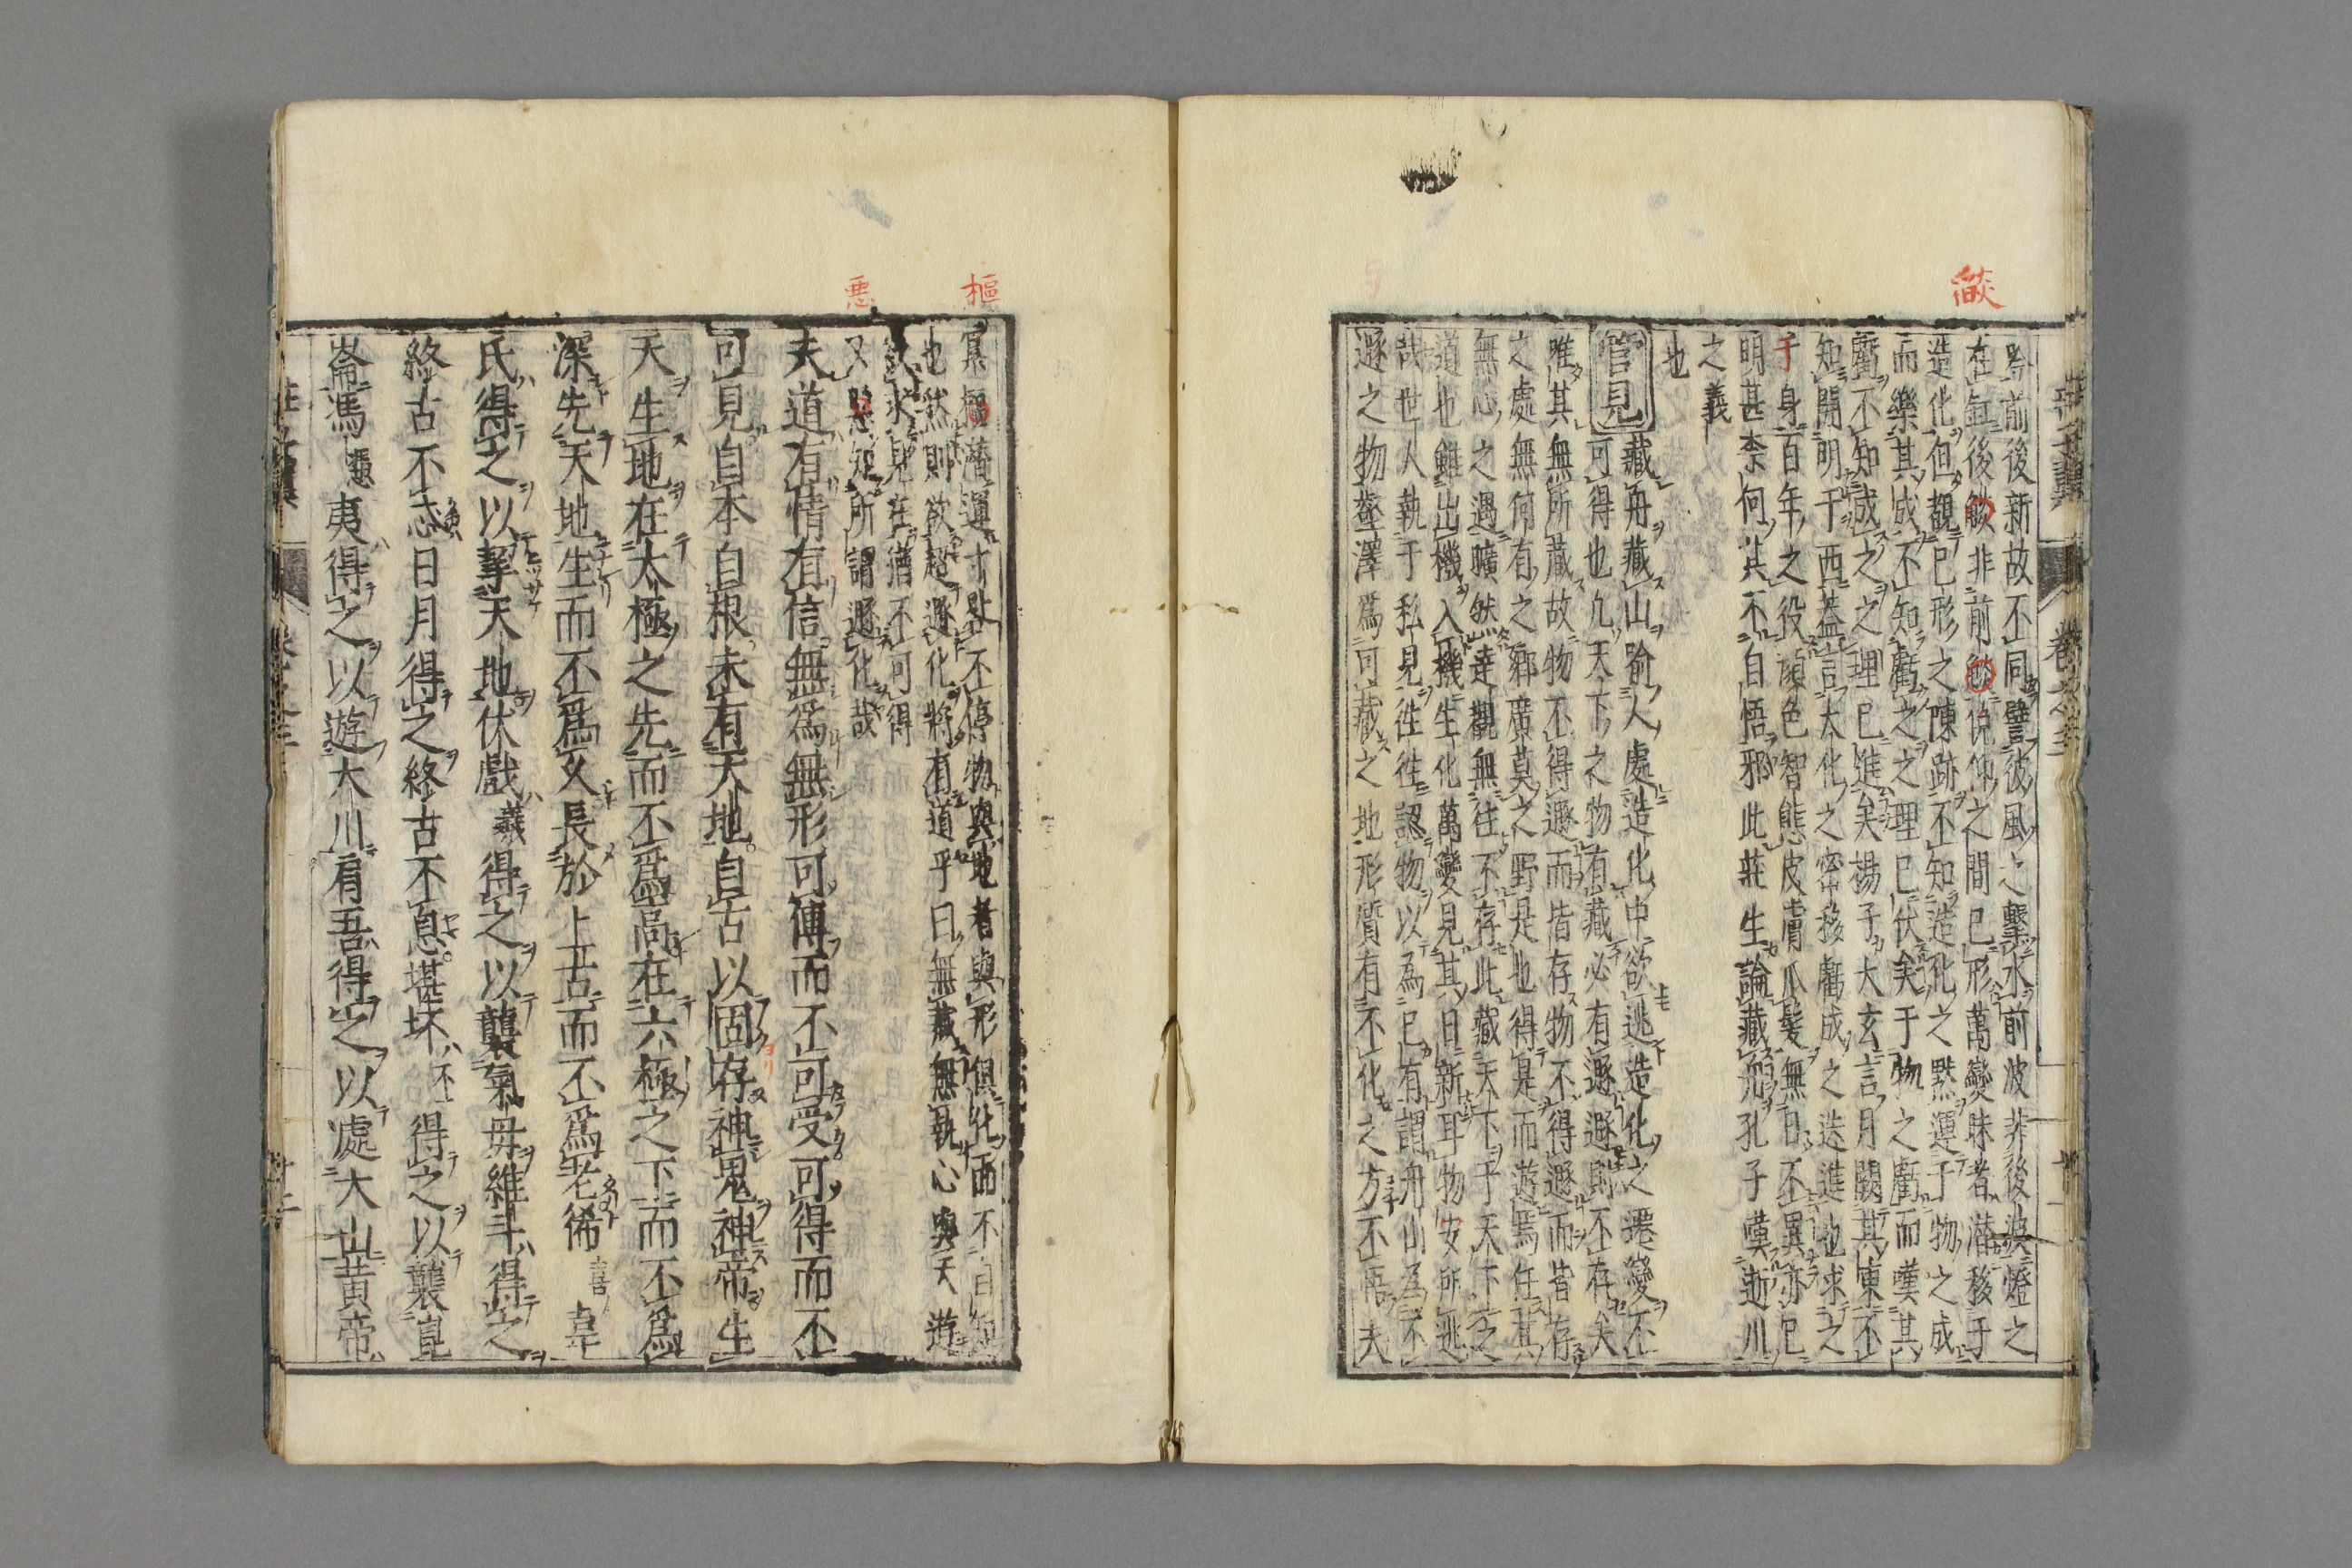 焔
吟前後新故不同譬彼風之擊水前波非後波燈之
在缸後燄非前燄俛仰之間已形萬變昧者潛移于
造化但觀已形之陳跡不知造化之黙運于物之成
而樂其成不知虧之之理已伏矣于物之虧而嘆其
虧不知成之之理已進矣揚子大玄言月闕其東不
知開明于西蓋言大化之密移虧成之迭進也求之
于身百年之役顔色智態皮膚爪髮無日不異亦已
明甚柰何其不自悟邪此莊生論藏舟孔子嘆逝川
之義
也
管見 藏舟藏山喻人處造化中欲逃造化之遷變不
可得也凢天下之物有藏必有遯遯則不存矣
唯其無所藏故物不得遯而皆存物不得遯而皆存
之處無何有之鄉廣莫之野是也得是而遊焉任其
無心之遇曠然達觀無往不存此藏天下于天下之
道也雖出機入機生化萬變見其日新耳物安所逃
哉世人執于私見往往認物以為已有謂舟山為不
遯之物壑澤爲可藏之地形質有不化之方不悟夫
莊子翼 卷之三
樞
悪
冥樞潛運寸晷不停物與地者與形俱化而不自知
也然則欲超遯化將有道乎曰無藏無執心與天遊
欲求見在猶不可得
又惡知所謂遯化哉
夫道有情有信無爲無形可傳而不可受可得而不
可見自本自根未有天地自古以固存神鬼神帝生
天生地在太極之先而不爲高在六極之下而不爲
深先天地生而不爲久長於上古而不爲老狶喜韋
氏得之以挈天地伏戲羲得之以襲氣母維斗得之
終古不忒日月得之終古不息堪坏不得之以襲崑
崙馮憑夷得之以遊大川肩吾得之以處大山黄帝